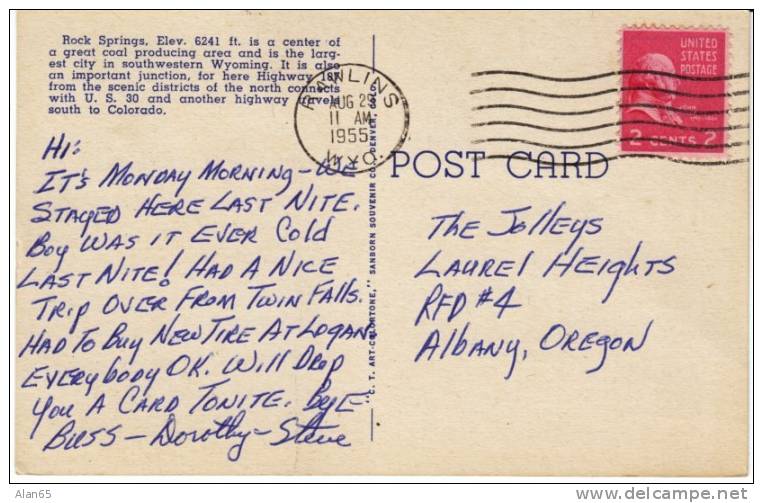 Rock Springs, Elev. 6241 ft. is a center of
a great coal producing area and is the larg-
est city in southwestern Wyoming. It is also
an important junction, for here Highway 187
from the scenic districts of the north connects
with U. S. 30 and another highway
south to Colorado.
Hi:
It's Monday Morning - We
Stayed Here Last Nite.
Boy Was It Ever Cold
Last Nite! Had A Nice
Trip Over From Twin Falls.
Had To Buy New Tire At Logan
Everybody OK. Will Drop
You A Card Tonite. Bye
Buss - Dorothy - Steve
"C. T. ART-COLORTONE," SANBORN SOUVENIR CO., DENVER, COLO.
RAWLINS
AUG 29
11 AM
1955
WYO.
UNITED
STATES
POSTAGE
JOHN
2 CENTS 2
POST CARD
The Jolleys
Laurel Heights
RFD #4
Albany, Oregon
Alan65
www.delcampe.net